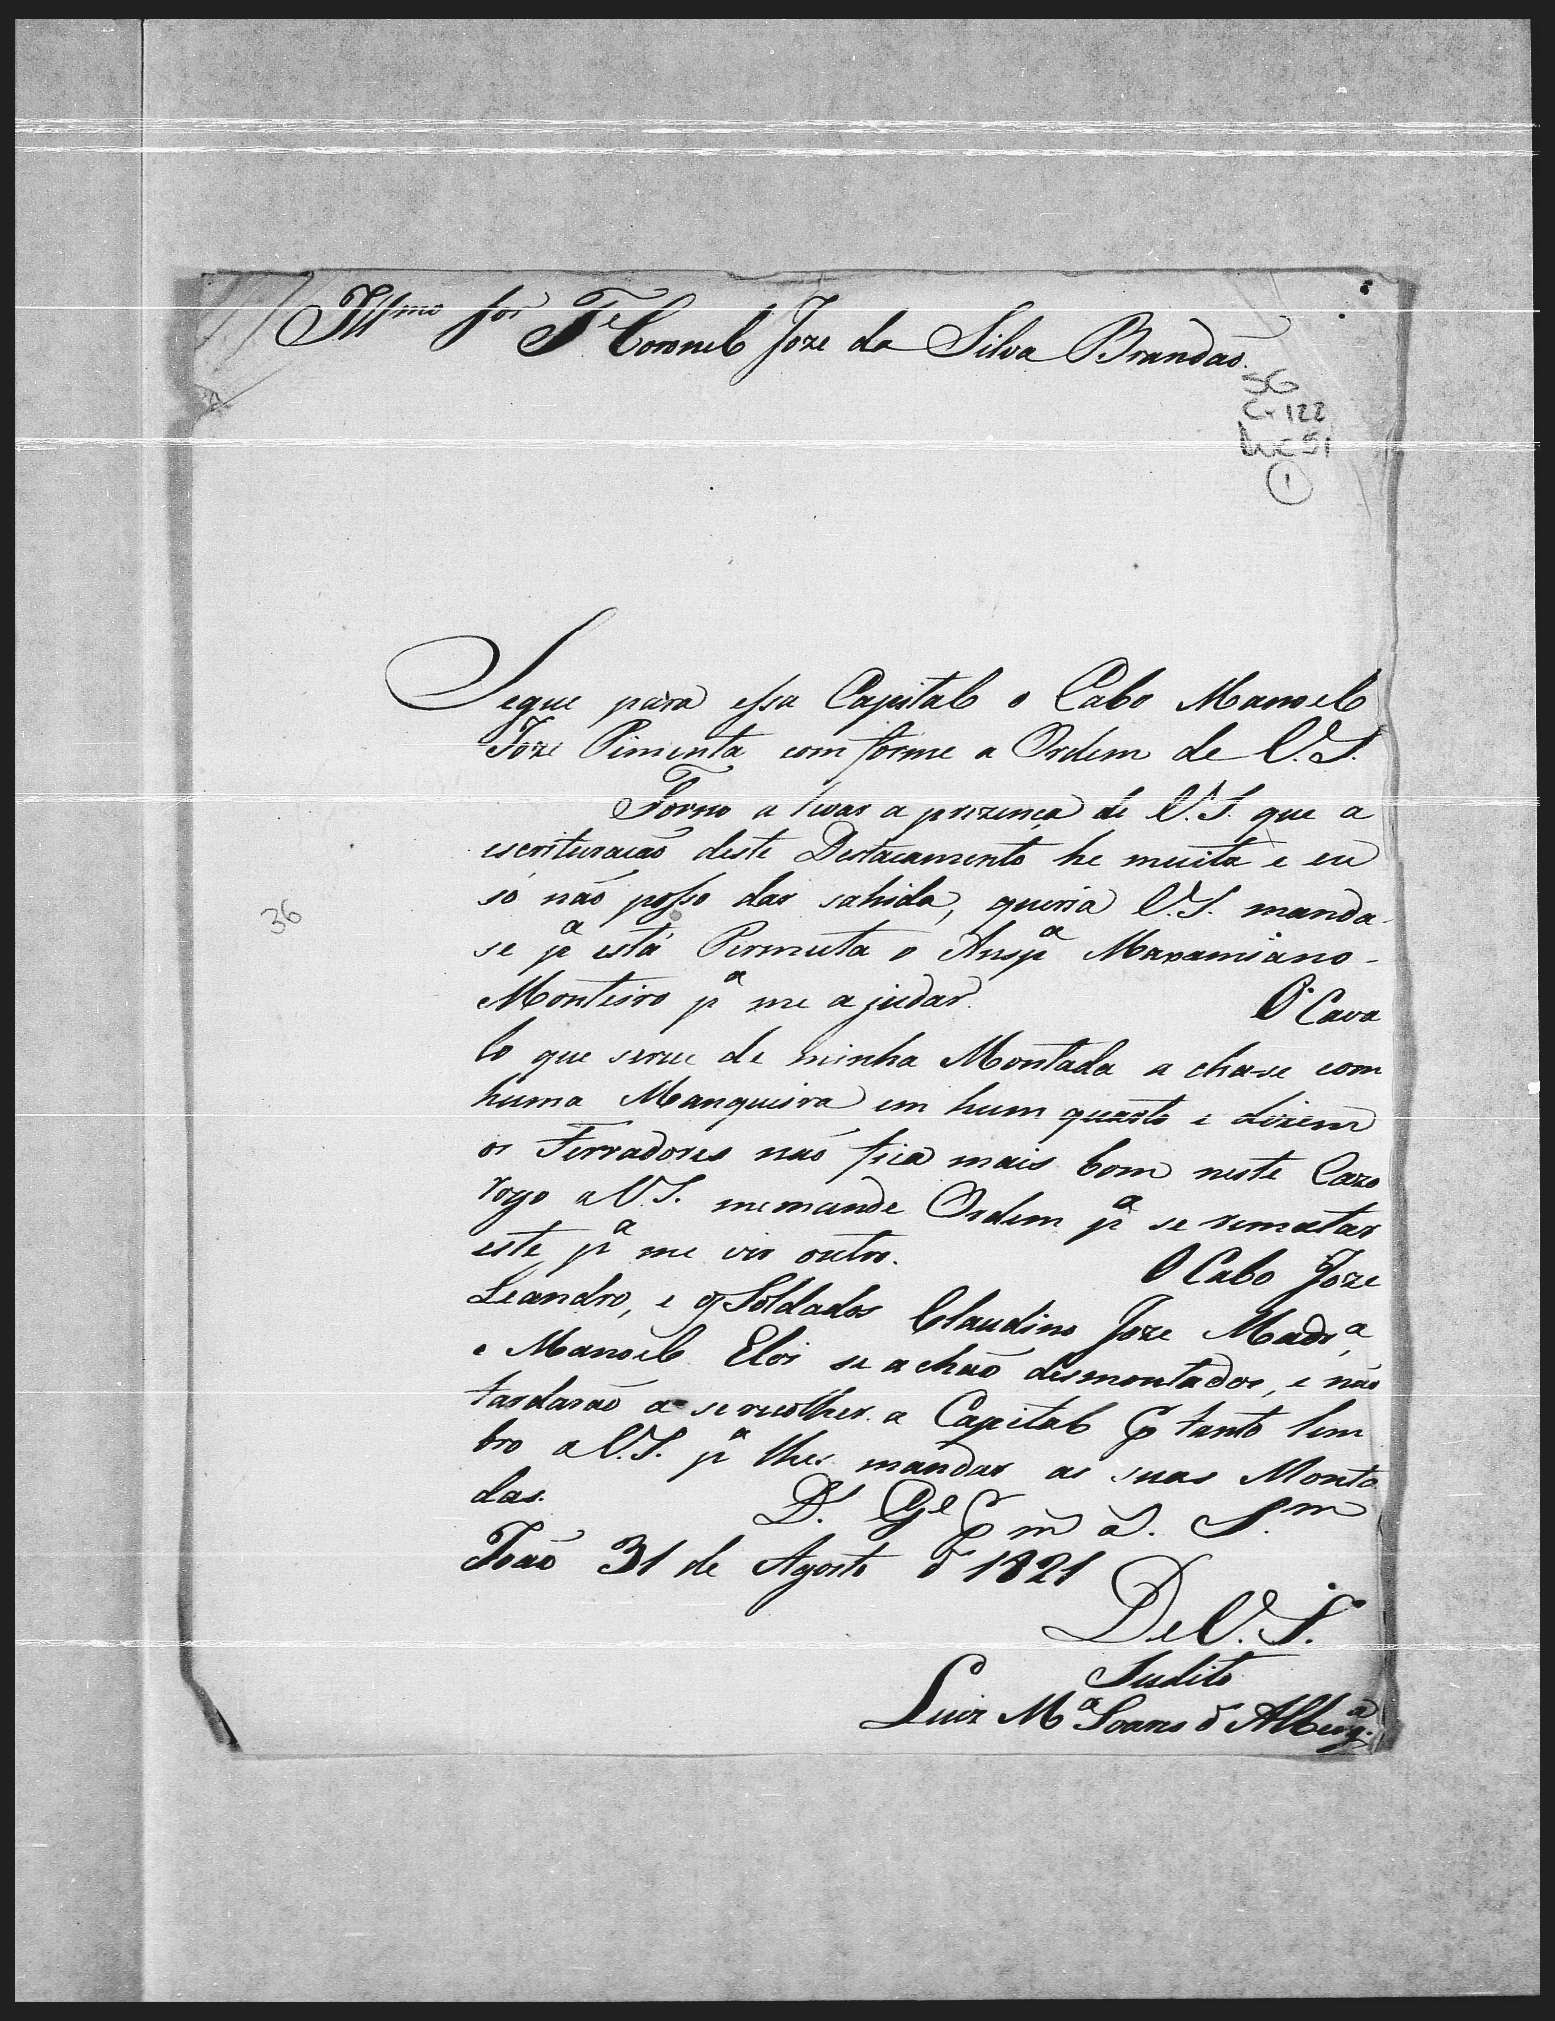 Illmo Sor Te Coronel Joze da Silva Brandão.
SG
Cx 122
Doc 51
1
Segue para essa Capital o Cabo Manoel
Joze Pimenta com forme a Ordem de V.S.
Torno a levar a prezença de V.S. que a
escrituração deste Destacamento he muita e eu
só não posso dar sahida, queria V.S. manda-
se pa está Permuta o Anspa Maxamiano
Monteiro pa me ajudar. O Cava
36
lo que serve de minha Montada a cha-se com
huma Manqueira em hum quarto e dizem
os Ferradores não fica mais bom neste Cazo
rogo a V.S. me mande Ordem pa se rematar
este pa me vir outro. O Cabo Joze
Leandro, e os Soldados Claudino Joze Madra
e Manoel Eloi se a chão desmontados, e não
tardarão a se recolher a Capital P tanto lem
bro a V.S. pa lhes mandar as suas Monta
das. Ds. Ge P m a. S.m
João 31 de Agosto d 1821
De V.S.
Sudito
Luiz Ma Soares d Albuqa.